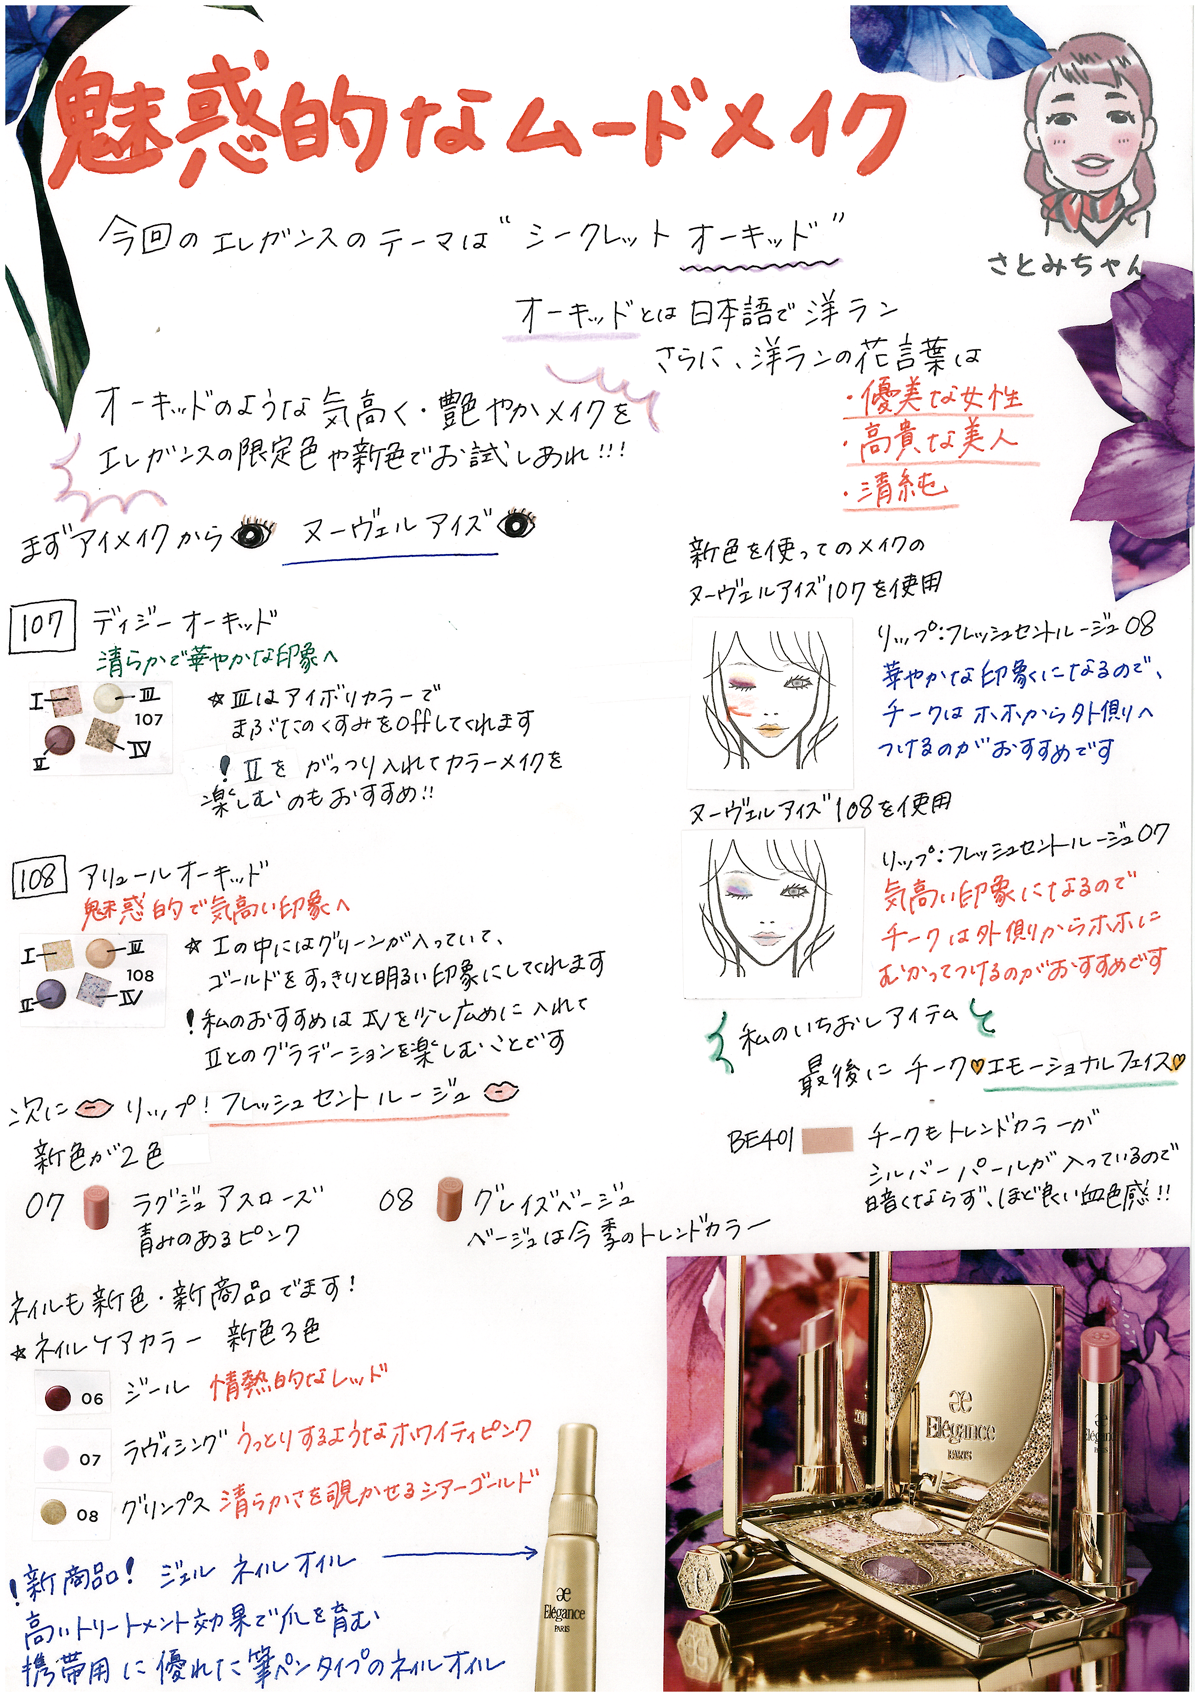 魅惑的なムードメイク
さとみちゃん
今回のエレガンスのテーマは“シークレット オーキッド”
オーキッドとは日本語で洋ラン
さらに、洋ランの花言葉は
・優美な女性
・高貴な美人
・清純
オーキッドのような気高く・艶やかメイクを
エレガンスの限定色や新色でお試しあれ!!!
まずアイメイクから ヌーヴェル アイズ
107 ディジー オーキッド
清らかで華やかな印象へ
I III
107
II IV
☆ IIIはアイボリカラーで
まぶたのくすみをOffしてくれます
! IIを がっつり入れてカラーメイクを
楽しむのもおすすめ!!
108 アリュール オーキッド
魅惑的で気高い印象へ
I III
108
II IV
☆ Iの中にはグリーンが入っていて、
ゴールドをすっきりと明るい印象にしてくれます
! 私のおすすめは IVを少し広めに入れて
IIとのグラデーションを楽しむことです
次に リップ! フレッシュ セント ルージュ
新色が2色
07 ラグジュアスローズ
青みのあるピンク
08 グレイズベージュ
ベージュは今季のトレンドカラー
新色を使ってのメイクの
ヌーヴェルアイズ107を使用
リップ:フレッシュセントルージュ08
華やかな印象になるので、
チークは ホホから外側へ
つけるのがおすすめです
ヌーヴェルアイズ108を使用
リップ:フレッシュセントルージュ07
気高い印象になるので
チークは外側からホホに
むかってつけるのがおすすめです
私のいちおしアイテム
最後に チーク♡エモーショナルフェイス♡
BE401
チークもトレンドカラーが
シルバーパールが入っているので
暗くならず、ほど良い血色感!!
ネイルも新色・新商品でます!
☆ネイルケアカラー 新色3色
06 ジール 情熱的なレッド
07 ラヴィシング うっとりするようなホワイティピンク
08 グリンプス 清らかさを覗かせるシアーゴールド
!新商品! ジェル ネイル オイル
高いトリートメント効果で爪を育む
携帯用に優れた筆ペンタイプのネイルオイル
æ
Elégance
PARIS
æ
Elégance
PARIS
æ
Elégance
PARIS